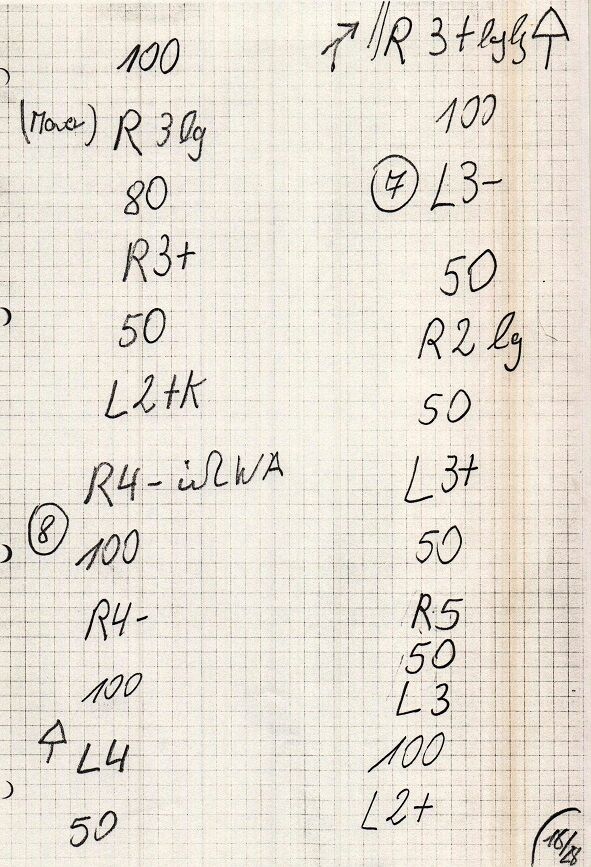 100
(Mauer) R 3 lg
80
R3+
50
L2+K
R4- iΩWA
⑧ 100
R4-
100
↑ L4
50
↗ // R 3+lglg ↑
100
⑦ L3-
50
R2 lg
50
L3+
50
R5
50
L3
100
L2+
16/28